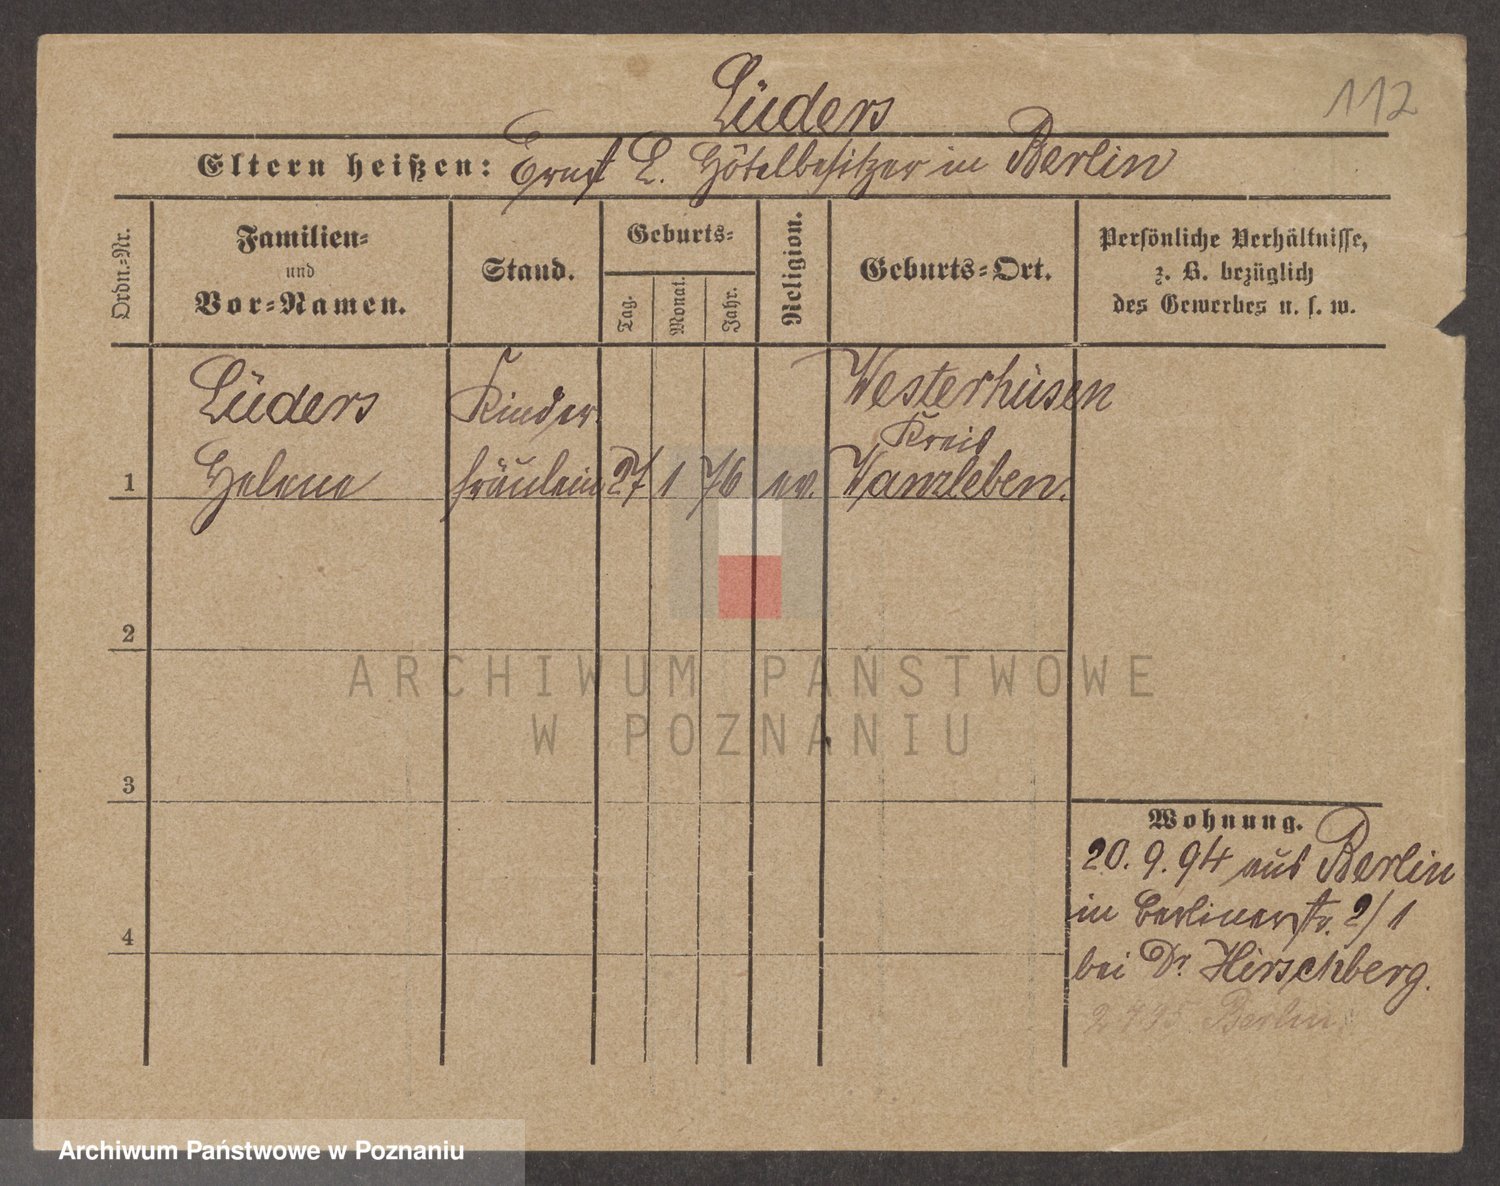 Lüders
112
Eltern heißen: Ernst L. Hôtelbesitzer in Berlin
Ordn.-Nr.
Familien-
und
Vor-Namen.
Stand.
Geburts-
Tag.
Monat.
Jahr.
Religion.
Geburts-Ort.
Persönliche Verhältnisse,
z. B. bezüglich
des Gewerbes u. s. w.
Lüders
Kinder
Westerhüsen
Kreis
1 Helene fräulein 27 1 76 ev. Wanzleben.
2
ARCHIWUM PAŃSTWOWE
W POZNANIU
3
Wohnung.
20. 9. 94 aus Berlin
in Berlinerstr. 2/1
4
bei Dr Hirschberg.
Berlin
Archiwum Państwowe w Poznaniu